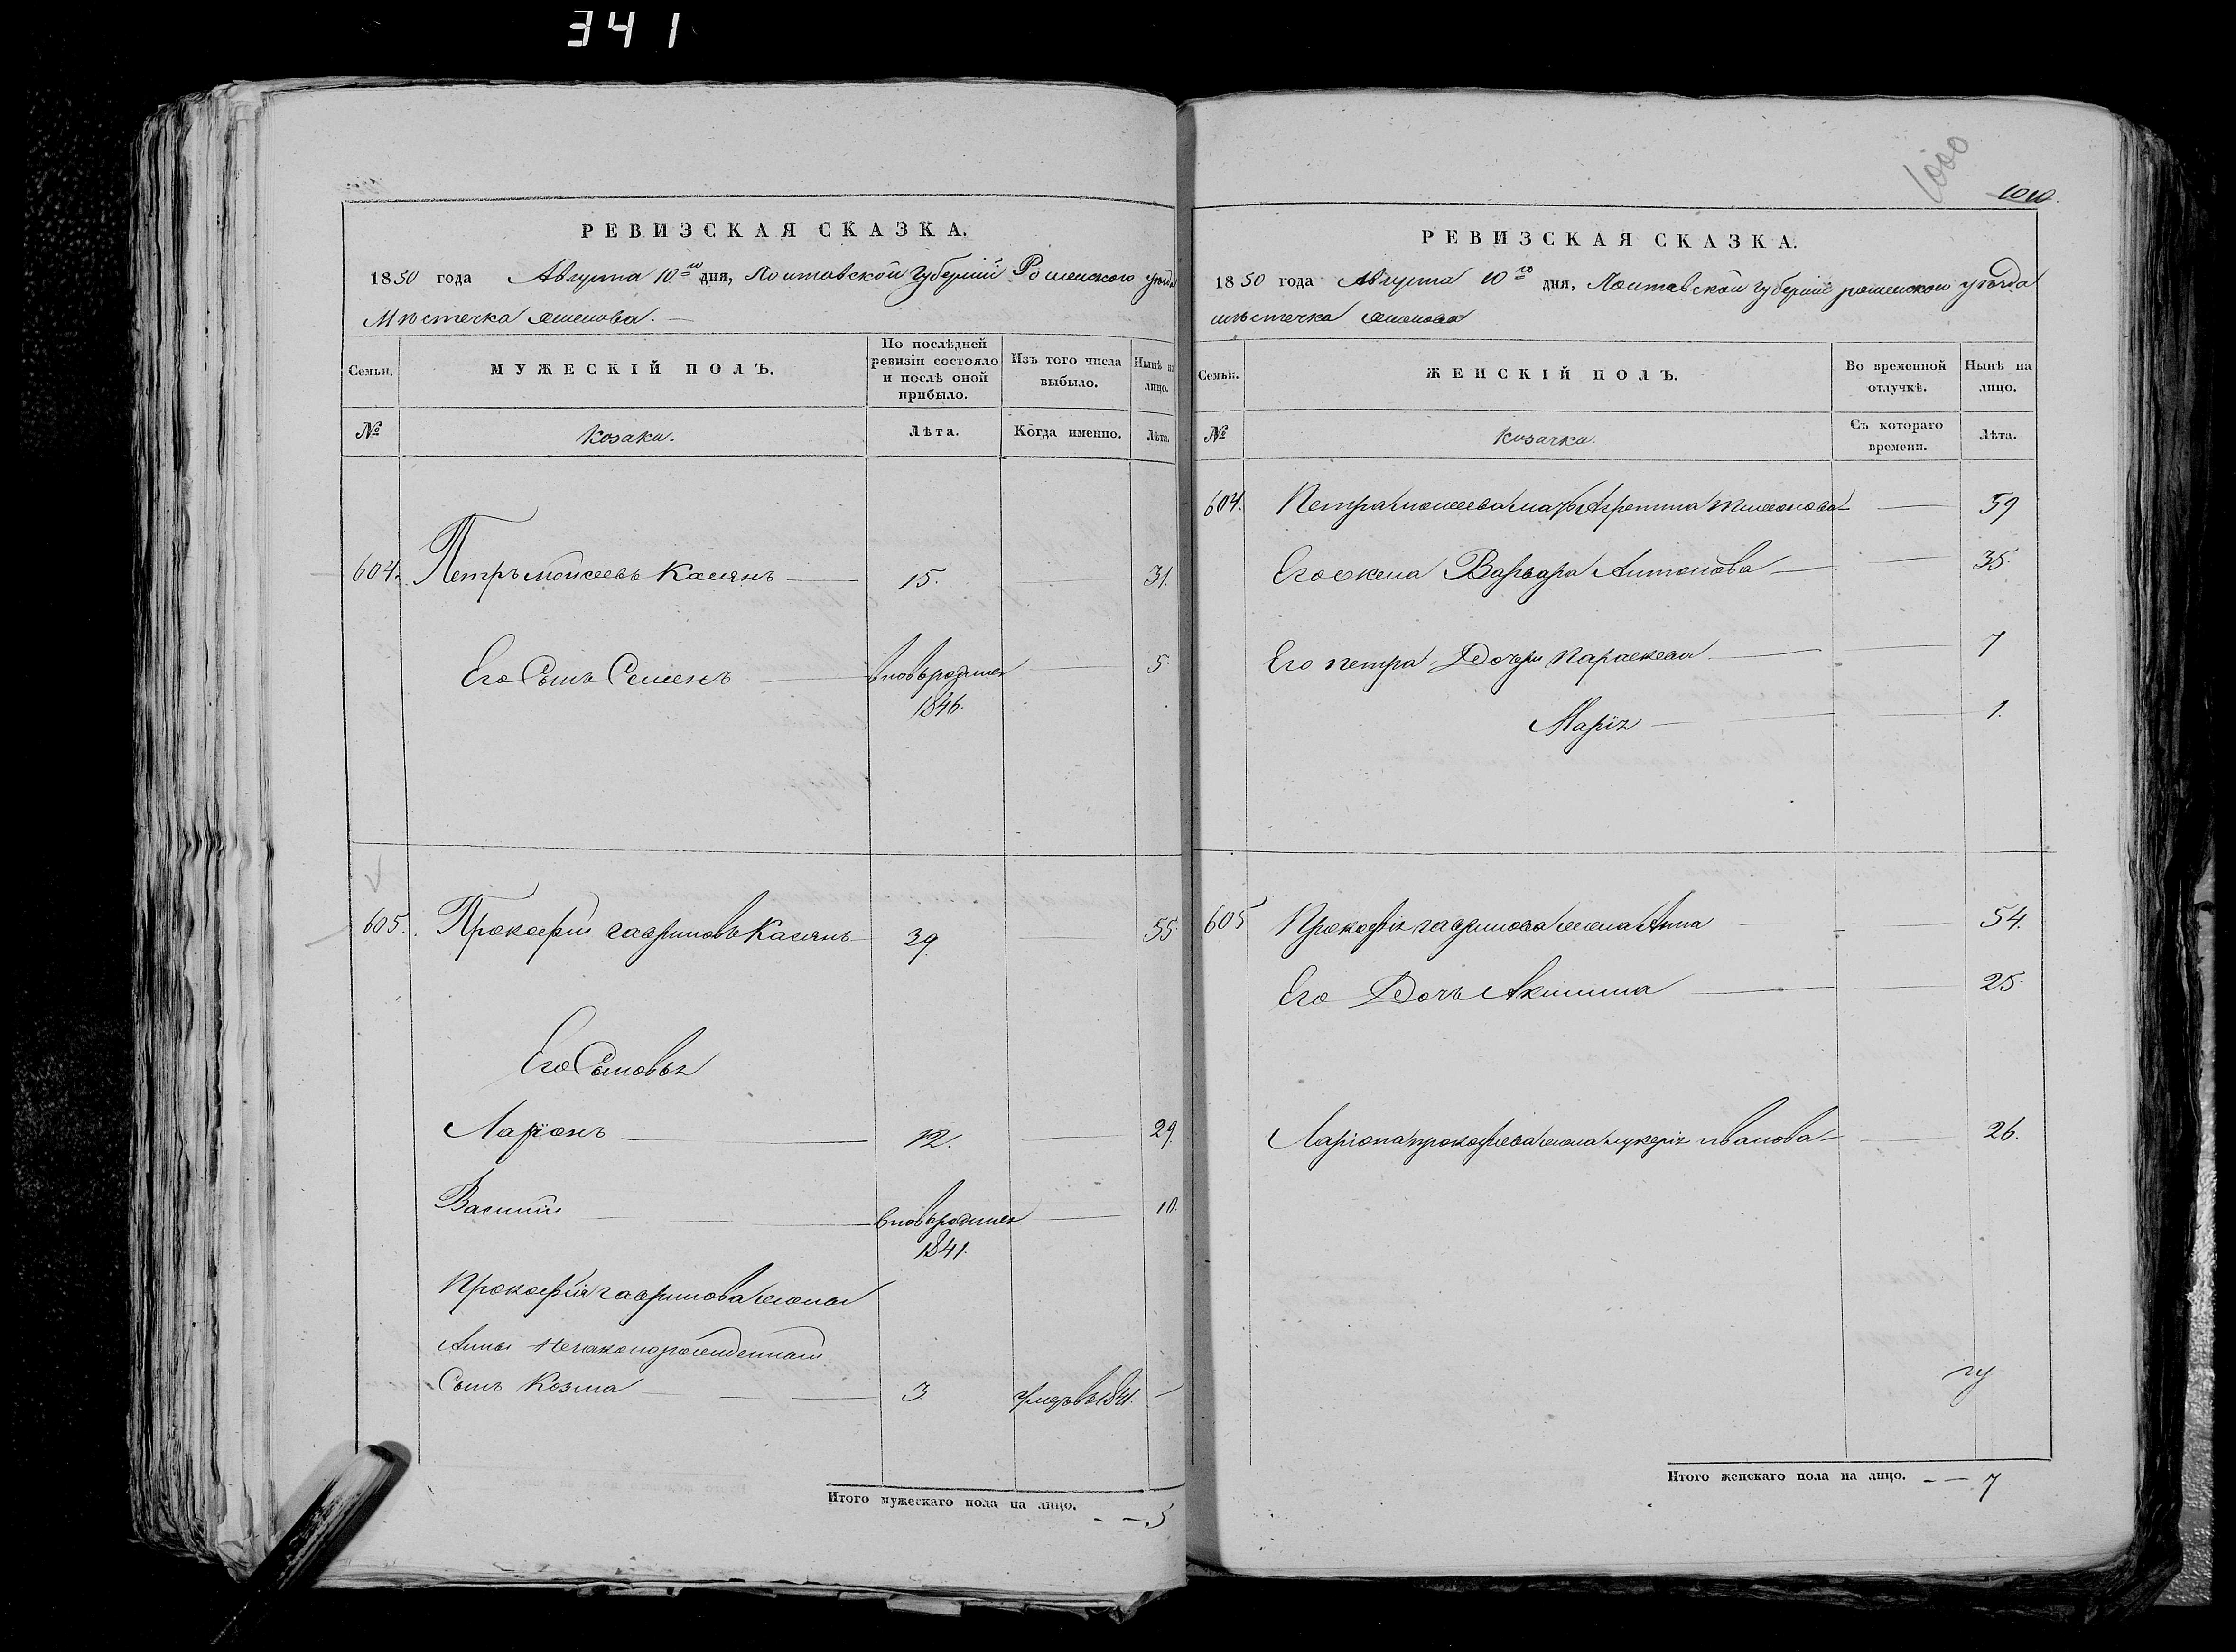 341
РЕВИЗСКАЯ СКАЗКА.
1850 года Августа 10го дня, Полтавской Губерніи Роменского уѣзда
Мѣстечка
Семьи.
МУЖЕСКІЙ ПОЛЪ.
По послѣдней ревизіи состояло и послѣ оной прибыло.
Изъ того числа выбыло.
Нынѣ на лицо.
№
Козаки.
Лѣта.
Когда именно.
Лѣта.
604. Петръ Моисеевъ Касянъ 15. 31.
Его Сынъ Семенъ вновьрожден 5.
1846.
605. Прокофій Гавриловъ Касянъ 39. 55.
Его Сыновья
Ларіонъ 12. 29.
Василій вновьрожден 10.
1841.
Прокофія Гаврилова жены
Анны Незаконорожденный
Сынъ Козма 3. Умеръ въ 1841. —
Итого мужескаго пола на лицо. — — 5
1000
1010.
РЕВИЗСКАЯ СКАЗКА.
1850 года Августа 10го дня, Полтавской Губерніи роменскои уѣзда
мѣстечка
Семьи.
ЖЕНСКІЙ ПОЛЪ.
Во временной отлучкѣ.
Нынѣ на лицо.
№
Козачки.
Съ котораго времени.
Лѣта.
604. Петра моисеева мать 59
Его жена Варвара Антонова 35.
Его петра Дочери Параскева 7
Марія 1.
605 Прокофія гаврилова жена Анна 54.
Его Дочь Акилина 25.
Ларіона прокофиева жена лукерія иванова 26.
Итого женскаго пола на лицо. — — 7